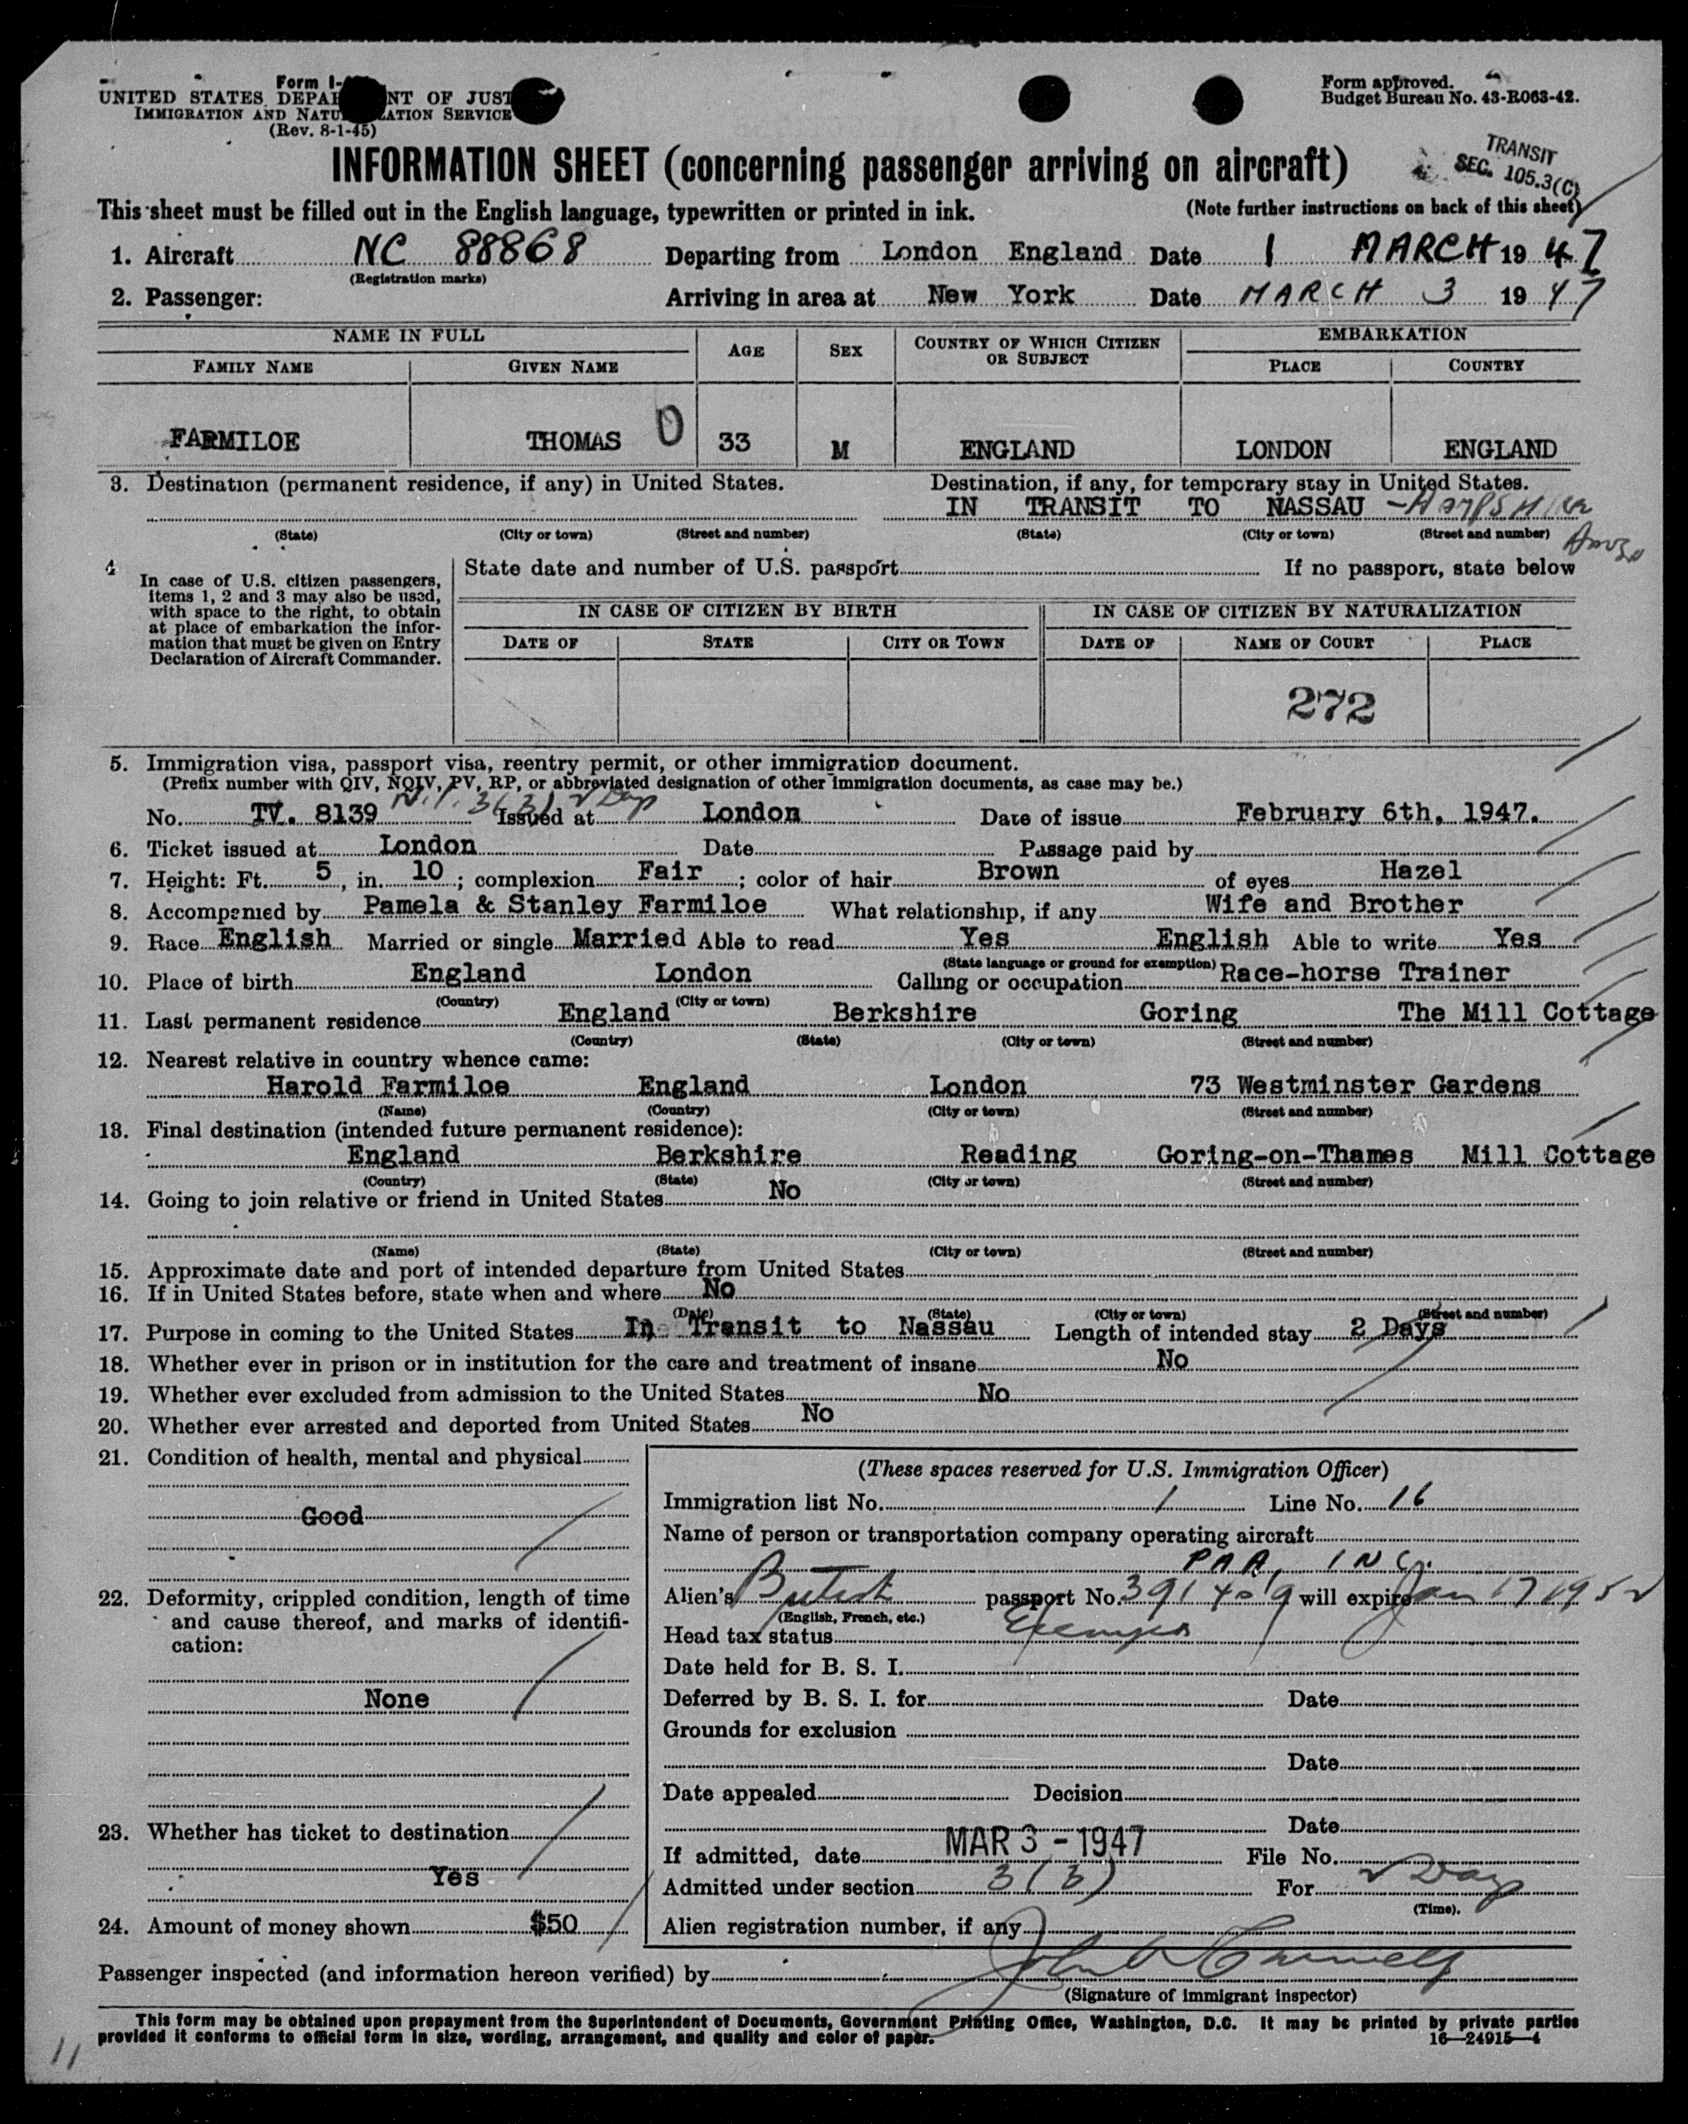 Form I-
UNITED STATES DEPAR NT OF JUST
IMMIGRATION AND NATU LATION SERVICE
(Rev. 8-1-45)
Form approved.
Budget Bureau No. 43-R063-42.
INFORMATION SHEET (concerning passenger arriving on aircraft)
TRANSIT
SEC. 105.3(C)
This sheet must be filled out in the English language, typewritten or printed in ink. (Note further instructions on back of this sheet)
1. Aircraft NC 88868 Departing from London England Date 1 MARCH 19 47
(Registration marks)
2. Passenger: Arriving in area at New York Date MARCH 3 19 47
NAME IN FULL AGE SEX COUNTRY OF WHICH CITIZEN OR SUBJECT EMBARKATION
FAMILY NAME GIVEN NAME PLACE COUNTRY
FARMILOE THOMAS O 33 M ENGLAND LONDON ENGLAND
3. Destination (permanent residence, if any) in United States. Destination, if any, for temporary stay in United States.
IN TRANSIT TO NASSAU - HAMPSHIRE
(State) (City or town) (Street and number) (State) (City or town) (Street and number)
House
4 In case of U.S. citizen passengers, items 1, 2 and 3 may also be used, with space to the right, to obtain at place of embarkation the information that must be given on Entry Declaration of Aircraft Commander.
State date and number of U.S. passport If no passport, state below
IN CASE OF CITIZEN BY BIRTH IN CASE OF CITIZEN BY NATURALIZATION
DATE OF STATE CITY OR TOWN DATE OF NAME OF COURT PLACE
272
5. Immigration visa, passport visa, reentry permit, or other immigration document.
(Prefix number with QIV, NQIV, PV, RP, or abbreviated designation of other immigration documents, as case may be.)
3(3) 2 Days
No. TV. 8139 Issued at London Date of issue February 6th, 1947.
6. Ticket issued at London Date Passage paid by
7. Height: Ft. 5, in. 10; complexion Fair; color of hair Brown of eyes Hazel
8. Accompanied by Pamela & Stanley Farmiloe What relationship, if any Wife and Brother
9. Race English Married or single Married Able to read Yes English Able to write Yes
(State language or ground for exemption)
10. Place of birth England London Calling or occupation Race-horse Trainer
(Country) (City or town)
11. Last permanent residence England Berkshire Goring The Mill Cottage
(Country) (State) (City or town) (Street and number)
12. Nearest relative in country whence came:
Harold Farmiloe England London 73 Westminster Gardens
(Name) (Country) (City or town) (Street and number)
13. Final destination (intended future permanent residence):
England Berkshire Reading Goring-on-Thames Mill Cottage
(Country) (State) (City or town) (Street and number)
14. Going to join relative or friend in United States No
(Name) (State) (City or town) (Street and number)
15. Approximate date and port of intended departure from United States
16. If in United States before, state when and where No
(Date) (State) (City or town) (Street and number)
17. Purpose in coming to the United States In Transit to Nassau Length of intended stay 2 Days
18. Whether ever in prison or in institution for the care and treatment of insane No
19. Whether ever excluded from admission to the United States No
20. Whether ever arrested and deported from United States No
21. Condition of health, mental and physical
Good
22. Deformity, crippled condition, length of time
and cause thereof, and marks of identifi-
cation:
None
23. Whether has ticket to destination
Yes
24. Amount of money shown $50
(These spaces reserved for U.S. Immigration Officer)
Immigration list No. 1 Line No. 16
Name of person or transportation company operating aircraft
PAA, INC.
Alien's British passport No. 391409 will expire Jan 17 1952
(English, French, etc.)
Head tax status Exempt
Date held for B. S. I.
Deferred by B. S. I. for Date
Grounds for exclusion
Date
Date appealed Decision
Date
If admitted, date MAR 3 - 1947 File No.
Admitted under section 3(3) For 2 Days
(Time).
Alien registration number, if any
Passenger inspected (and information hereon verified) by
(Signature of immigrant inspector)
This form may be obtained upon prepayment from the Superintendent of Documents, Government Printing Office, Washington, D.C. It may be printed by private parties
provided it conforms to official form in size, wording, arrangement, and quality and color of paper. 16—24915-4
11